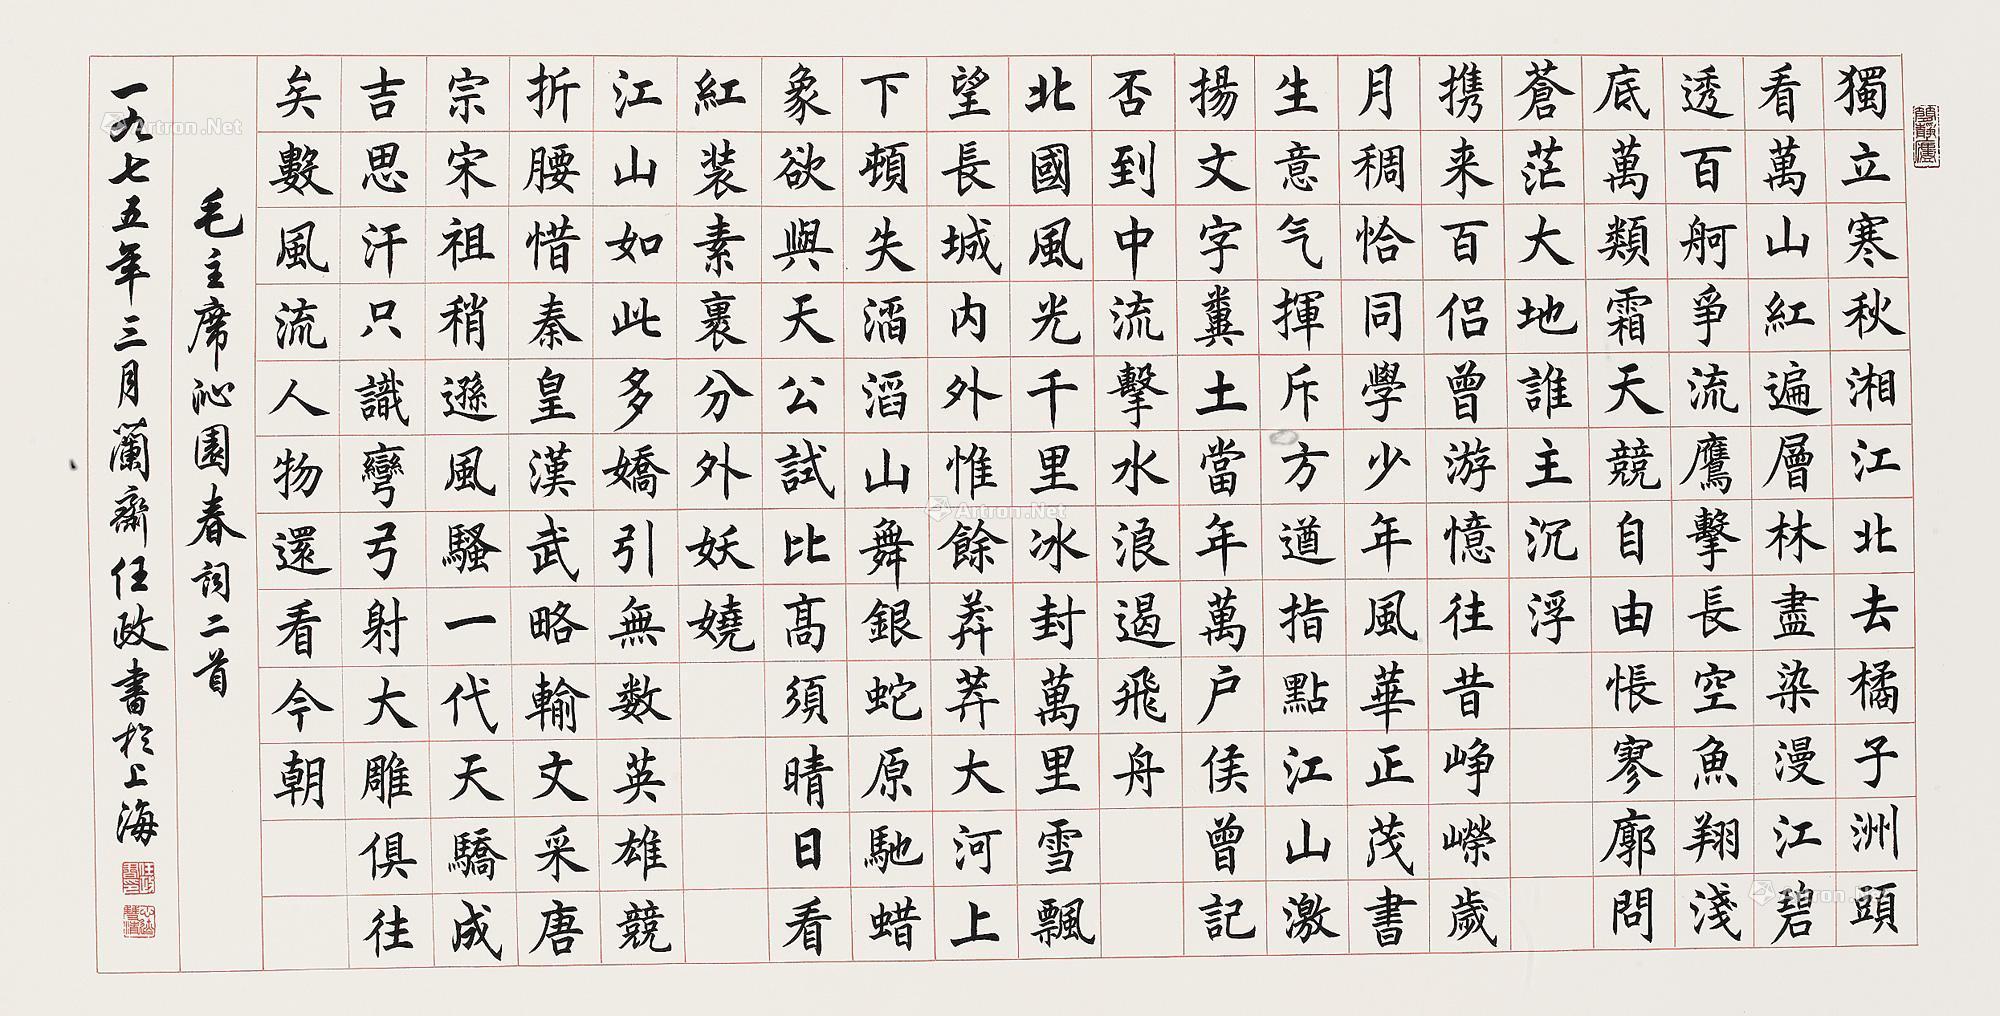 獨立寒秋湘江北去橘子洲頭
看萬山紅遍層林盡染漫江碧
透百舸爭流鷹擊長空魚翔淺
底萬類霜天競自由悵寥廓問
蒼茫大地誰主沉浮
携来百侣曾游憶往昔崢嶸歲
月稠恰同學少年風華正茂書
生意气揮斥方遒指點江山激
揚文字糞土當年萬户侯曾記
否到中流擊水浪遏飛舟
北國風光千里冰封萬里雪飄
望長城内外惟餘莽莽大河上
下頓失滔滔山舞銀蛇原馳蜡
象欲與天公試比高須晴日看
紅装素裹分外妖嬈
江山如此多嬌引無数英雄競
折腰惜秦皇漢武略輸文采唐
宗宋祖稍遜風騷一代天驕成
吉思汗只識彎弓射大雕俱往
矣數風流人物還看今朝
毛主席沁園春詞二首
一九七五年三月蘭齋任政書於上海
Artron.Net
Artron.Net
Artron.Net